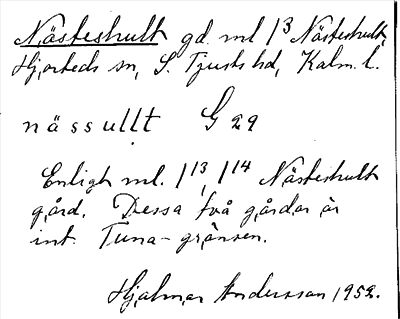 Nästeshult gd. ml 1³ Nästeshult,
Hjorteds sn, S. Tjusts hd, Kalm. l.
nässullt G 29
Enligt ml. 1¹³, 1¹⁴ Nästeshult
gård. Dessa två gårdar är
int. Tuna-gränsen.
Hjalmar Andersson 1952.